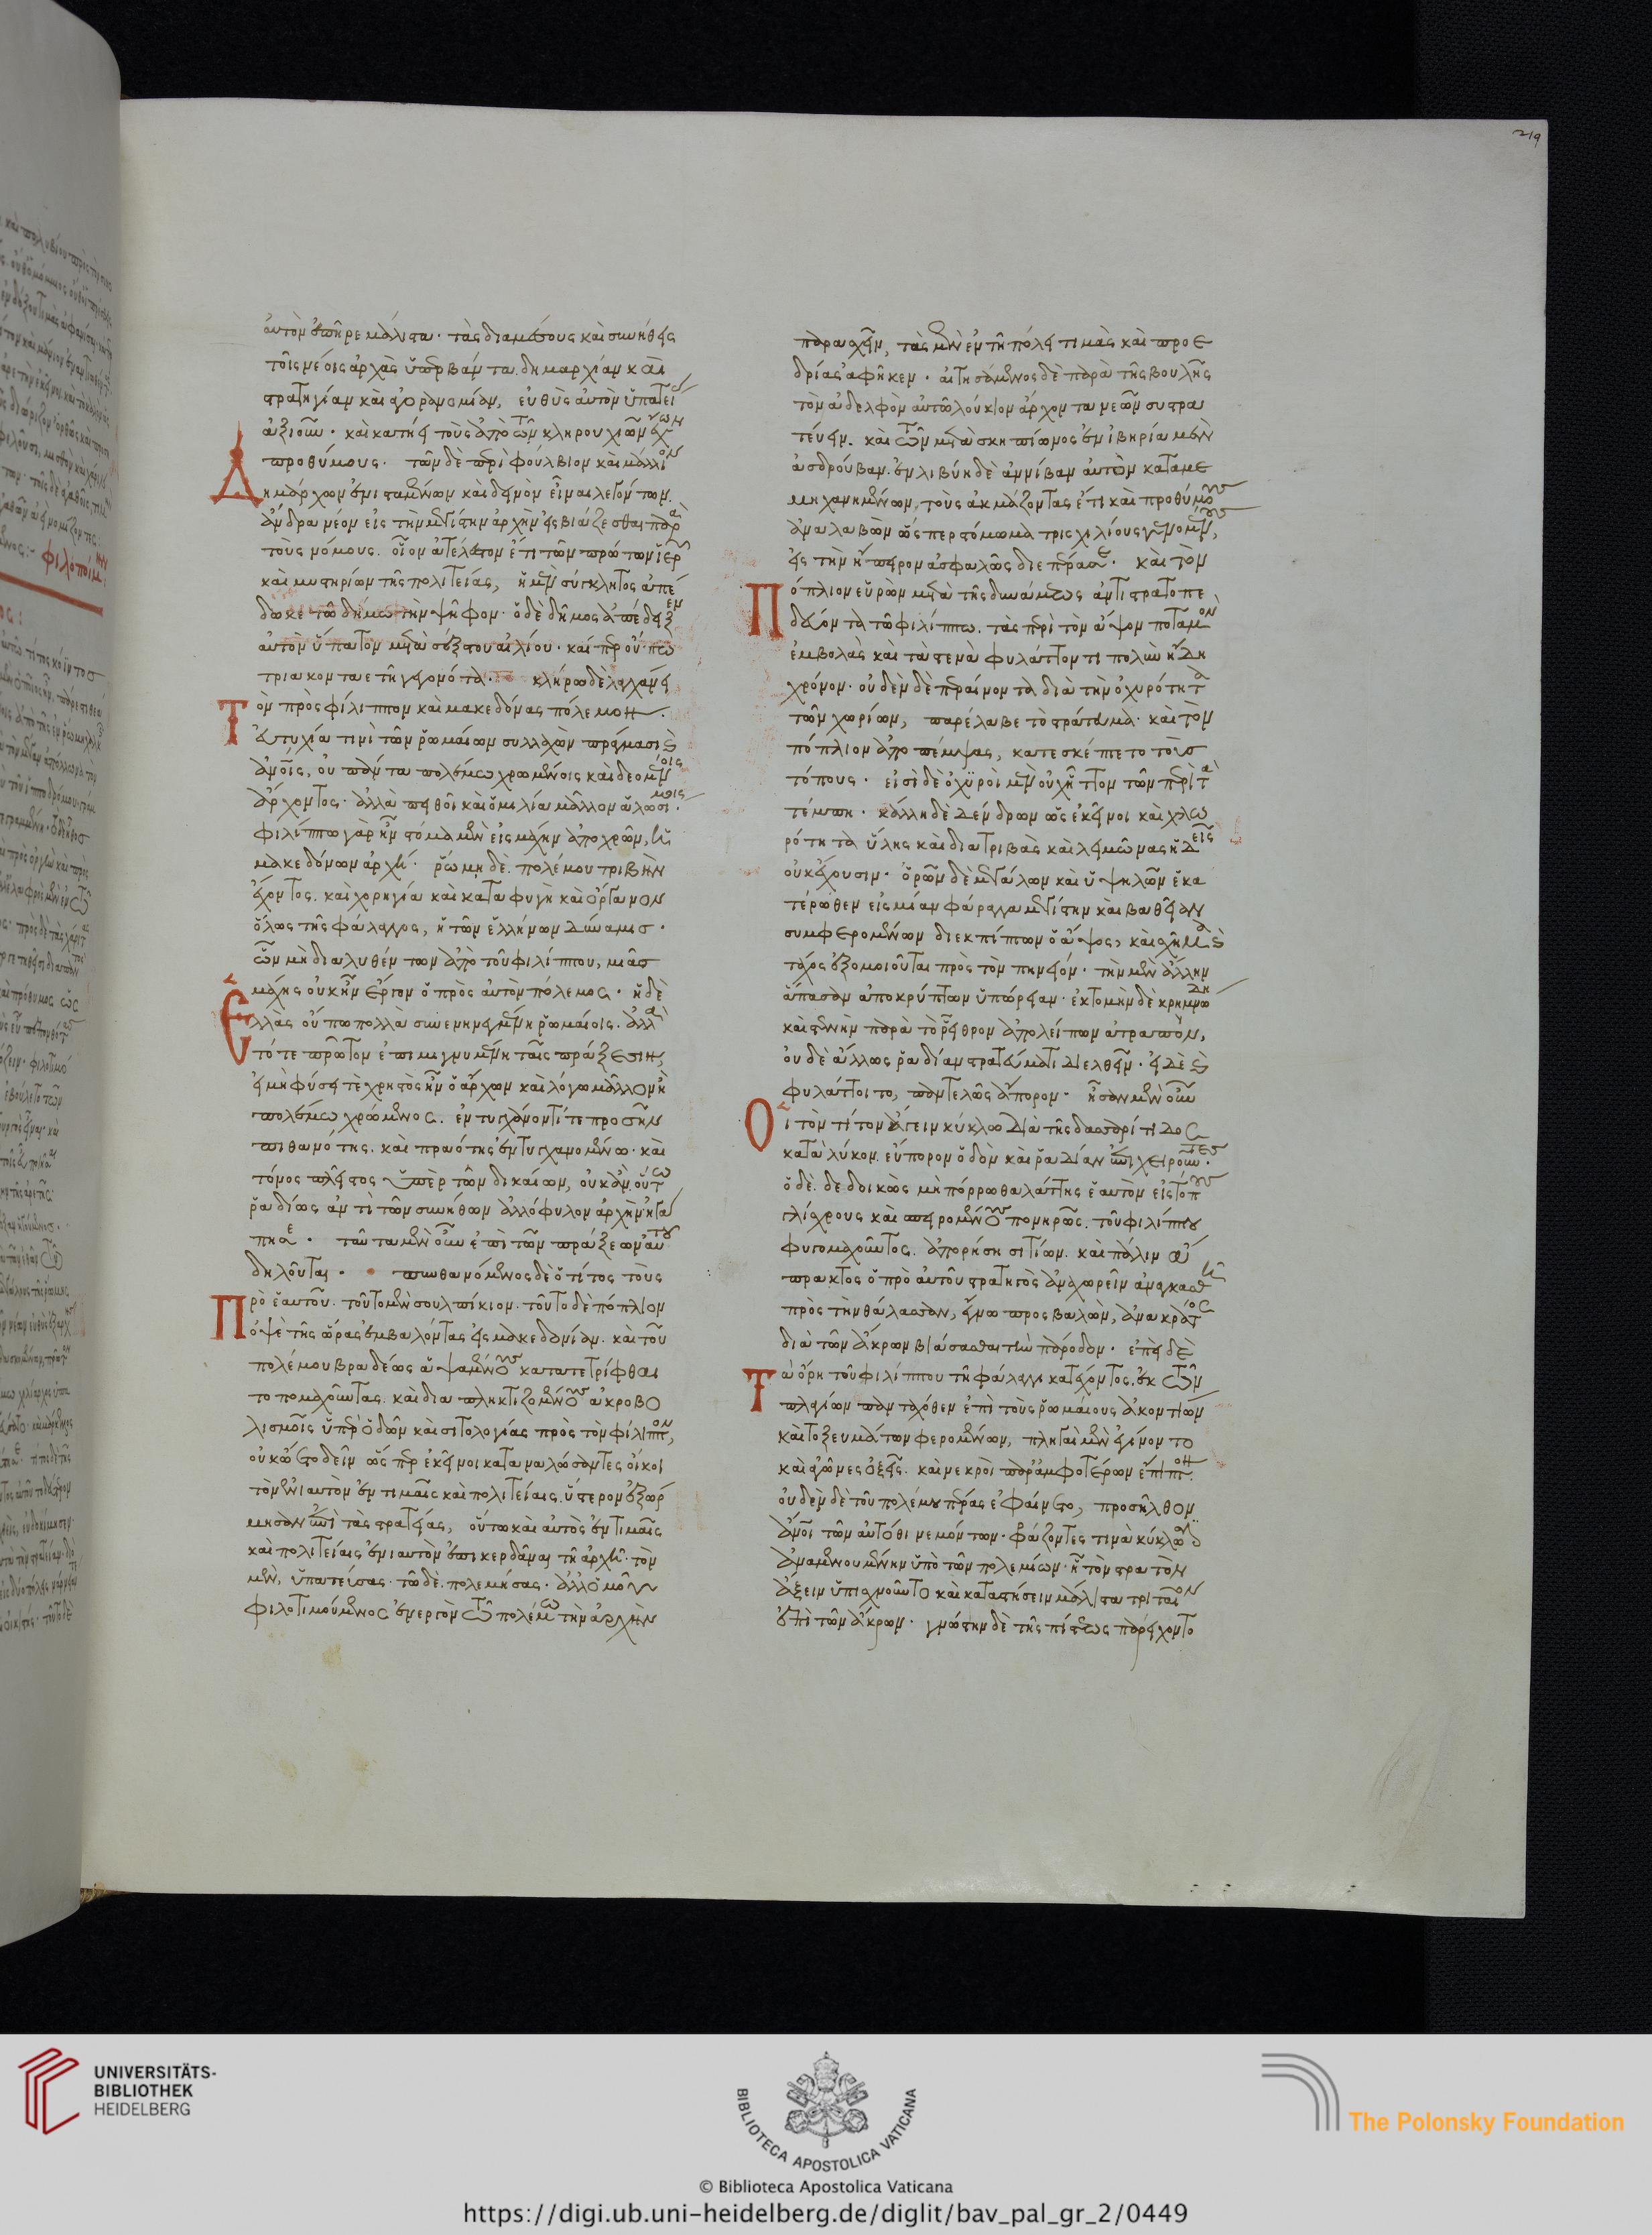 219
αὐτὸν ἐπῆρε μάλιστα· τὰς διαμέσους καὶ συνήθεις
τοῖς νέοις ἀρχὰς ὑπερβάντα δημαρχίαν καὶ
στρατηγίαν καὶ ἀγορανομίαν, εὐθὺς αὐτὸν ὑπατεί
ἀξιοῦν· καὶ κατῄει τοὺς ἀπὸ τῶν κληρουχιῶν ἔχων
προθύμους· τῶν δὲ περὶ φούλβιον καὶ μάλλιον
Δημάρχων ἐνισταμένων καὶ δεινὸν εἶναι λεγόντων
ἄνδρα νέον εἰς τὴν μεγίστην ἀρχὴν εἰσβιάζεσθαι παρὰ
τοὺς νόμους· οἷον ἀτέλεστον ἔτι τῶν πρώτων ἱερῶν
καὶ μυστηρίων τῆς πολιτείας, ἡ μὲν σύγκλητος ἀπέ
δωκε τῶ δήμω τὴν ψῆφον· ὁ δὲ δῆμος ἀπέδειξεν
αὐτὸν ὕπατον μετὰ σέξτου αἰλίου· καί περ οὔπω
τριακονταέτη γεγονότα· κλήρω δὲ λαγχάνει
Τὸν πρὸς φίλιππον καὶ μακεδόνας πόλεμον·
εὐτυχία τινὶ τῶν ῥωμαίων συλλαχὼν πράγμασι καὶ
ἀνθρώποις, οὐ πάντα πολέμω χρωμένοις καὶ δεομένοις
ἄρχοντος· ἀλλὰ πειθοῖ καὶ ὁμιλία μᾶλλον ἁλωσίμοις·
φιλίππω γὰρ ἦν στόμα μὲν εἰς μάχην ἀποχρῶν, ἡ
μακεδόνων ἀρχή· ῥώμη δὲ πολέμου τριβὴν
ἔχοντος· καὶ χορηγία καὶ καταφυγὴ καὶ ὄργανον
ὅλως τῆς φάλαγγος, ἡ τῶν ἑλλήνων δύναμις·
ὧν μὴ διαλυθέντων ἀπὸ τοῦ φιλίππου, μιᾶς
μάχης οὐκ ἦν ἔργον ὁ πρὸς αὐτὸν πόλεμος· ἡ δὲ
Ἑλλὰς οὔπω πολλὰ συνενηνεγμένη ῥωμαίοις· ἀλλὰ
τότε πρῶτον ἐπιμιγνυμένη ταῖς πράξεσιν,
εἰ μὴ φύσει τὲ χρηστὸς ἦν ὁ ἄρχων καὶ λόγω μᾶλλον ἢ
πολέμω χρώμενος· ἐντυγχάνοντί τε προσῆν
πιθανότης· καὶ πραότης ἐντυγχανομένω· καὶ
τόνος πλεῖστος ὑπὲρ τῶν δικαίων, οὐκ ἂν οὕτω
ῥαδίως ἀντὶ τῶν συνήθων ἀλλόφυλον ἀρχὴν ἠγά
πησε· ταῦτα μὲν οὖν ἐπὶ τῶν πράξεων αὐτοῦ
δηλοῦται· πυνθανόμενος δὲ ὁ τίτος τοὺς
Πρὸ ἑαυτοῦ· τοῦτο μὲν σουλπίκιον· τοῦτο δὲ πόπλιον
ὀψὲ τῆς ὥρας ἐμβαλόντας εἰς μακεδονίαν· καὶ τοῦ
πολέμου βραδέως ἁψαμένους κατατετρίφθαι
τοπομαχοῦντας· καὶ διαπληκτιζομένους ἀκροβο
λισμοῖς ὑπὲρ ὁδῶν καὶ σιτολογίας πρὸς τὸν φίλιππον,
οὐκ ᾤετο δεῖν ὥς περ ἐκεῖνοι καταναλώσαντες οἴκοι
τὸν ἐνιαυτὸν ἐν τιμαῖς καὶ πολιτείαις, ὕστερον ἐξώρ
μησαν ἐπὶ τὰς στρατείας, οὕτω καὶ αὐτὸς ἐν τιμαῖς
καὶ πολιτείαις ἐνιαυτὸν ἐπικερδᾶναι τῆ ἀρχῆ· τὸν
μὲν, ὑπατεύσας· τῶ δὲ, πολεμήσας· ἀλλ' ὁμοῦ
φιλοτιμούμενος ἐνεργὸν τῶ πολέμω τὴν ἀρχὴν
παρασχεῖν, τὰς μὲν ἐν τῆ πόλει τιμὰς καὶ προε
δρίας ἀφῆκεν· αἰτησάμενος δὲ παρὰ τῆς βουλῆς
τὸν ἀδελφὸν αὐτῶ λούκιον ἄρχοντα νεῶν συστρα
τεύειν· καὶ τῶν μετὰ σκηπίωνος ἐν ἰβηρία μὲν
ἀσδρούβαν· ἐν λιβύη δὲ ἀννίβαν αὐτὸν καταμε
μαχημένων, τοὺς ἀκμάζοντας ἔτι καὶ προθύμους
ἀναλαβὼν ὥς περ στόμωμα τρισχιλίους γενομένους,
εἰς τὴν ἤπειρον ἀσφαλῶς διεπέρασε· καὶ τὸν
Πόπλιον εὑρὼν μετὰ τῆς δυνάμεως ἀντιστρατοπε
δεύοντα τῶ φιλίππω· τὰς περὶ τὸν ἄψον ποταμὸν
ἐμβολὰς καὶ τὰ στενὰ φυλάττοντι πολὺν ἤδη
χρόνον· οὐδὲν δὲ περαίνοντα διὰ τὴν ὀχυρότητα
τῶν χωρίων, παρέλαβε τὸ στράτευμα· καὶ τὸν
πόπλιον ἀποπέμψας, κατεσκέπτετο τοὺς
τόπους· εἰσὶ δὲ ὀχυροὶ μὲν οὐχ ἧττον τῶν περὶ τὰ
τέμπη· κάλλη δὲ δένδρων ὡς ἐκεῖνοι καὶ χλω
ρότητα ὕλης καὶ διατριβὰς καὶ λειμῶνας ἡδεῖς
οὐκ ἔχουσιν· ὀρῶν δὲ μεγάλων καὶ ὑψηλῶν ἑκα
τέρωθεν εἰς μίαν φάραγγα μεγίστην καὶ βαθεῖαν
συμφερομένων διεκπίπτων ὁ ἄψος, καὶ σχῆμα καὶ
τάχος ἐξομοιοῦται πρὸς τὸν πηνειόν· τὴν μὲν ἄλλην
ἅπασαν ἀποκρύπτων ὑπώρειαν· ἐκτομὴν δὲ κρημνώδη
καὶ στενὴν παρὰ τὸ ῥεῖθρον ἀπολείπων ἀτραπὸν,
οὐδὲ ἄλλως ῥαδίαν στρατεύματι διελθεῖν· εἰ δὲ καὶ
φυλάττοιτο, παντελῶς ἄπορον· ἦσαν μὲν οὖν
Οἳ τὸν τίτον ἄγειν κύκλω διὰ τῆς δασσαρίτιδος
κατὰ λύκον· εὔπορον ὁδὸν καὶ ῥαδίαν ἐπιχειροῦντες·
ὁ δὲ δεδοικὼς μὴ πόρρω θαλάττης ἑαυτὸν εἰς τόπους
γλίσχρους καὶ σπειρομένους πονηρῶς· τοῦ φιλίππου
φυγομαχοῦντος· ἀπορήση σιτίων· καὶ πάλιν ἄ
πρακτος ὁ πρὸ αὐτοῦ στρατηγὸς ἀναχωρεῖν ἀναγκασθῆ
πρὸς τὴν θάλασσαν, ἔγνω προσβαλὼν, ἀνὰ κράτος
διὰ τῶν ἄκρων βιάσασθαι τὴν πάροδον· ἐπεὶ δὲ
Τὰ ὄρη τοῦ φιλίππου τῆ φάλαγγι κατέχοντος, ἐκ τῶν
πλαγίων πανταχόθεν ἐπὶ τοὺς ῥωμαίους ἀκοντίων
καὶ τοξευμάτων φερομένων, πληγαὶ μὲν ἐγίνοντο
καὶ ἀγῶνες ὀξεῖς· καὶ νεκροὶ παρ' ἀμφοτέρων ἔπιπτον·
οὐδὲν δὲ τοῦ πολέμου πέρας ἐφαίνετο, προσῆλθον
ἄνθρωποι τῶν αὐτόθι νεμόντων· φράζοντές τινὰ κύκλωσιν
ἀμελουμένην ὑπὸ τῶν πολεμίων· ἧ τὸν στρατὸν
ἄξειν ὑπισχνοῦντο καὶ καταστήσειν μάλιστα τριταῖον
ἐπὶ τῶν ἄκρων· γνώστην δὲ τῆς πίστεως παρείχοντο
UNIVERSITÄTS-
BIBLIOTHEK
HEIDELBERG
BIBLIOTECA APOSTOLICA VATICANA
The Polonsky Foundation
© Biblioteca Apostolica Vaticana
https://digi.ub.uni-heidelberg.de/diglit/bav_pal_gr_2/0449